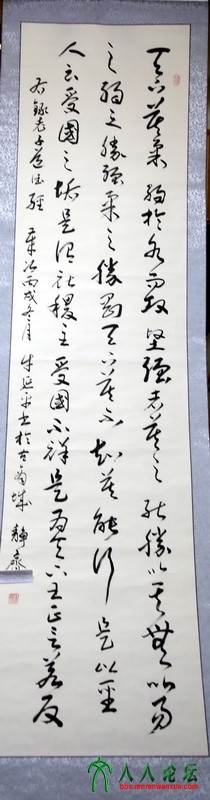 天下莫柔弱於水而攻堅強者莫之能勝以其無以易
之弱之勝強柔之勝剛天下莫不知莫能行是以聖
人云受國之垢是謂社稷主受國不祥是為天下王正言若反
右錄老子道德經 歲次丙戌冬月 書於古城 靜齋
人人论坛